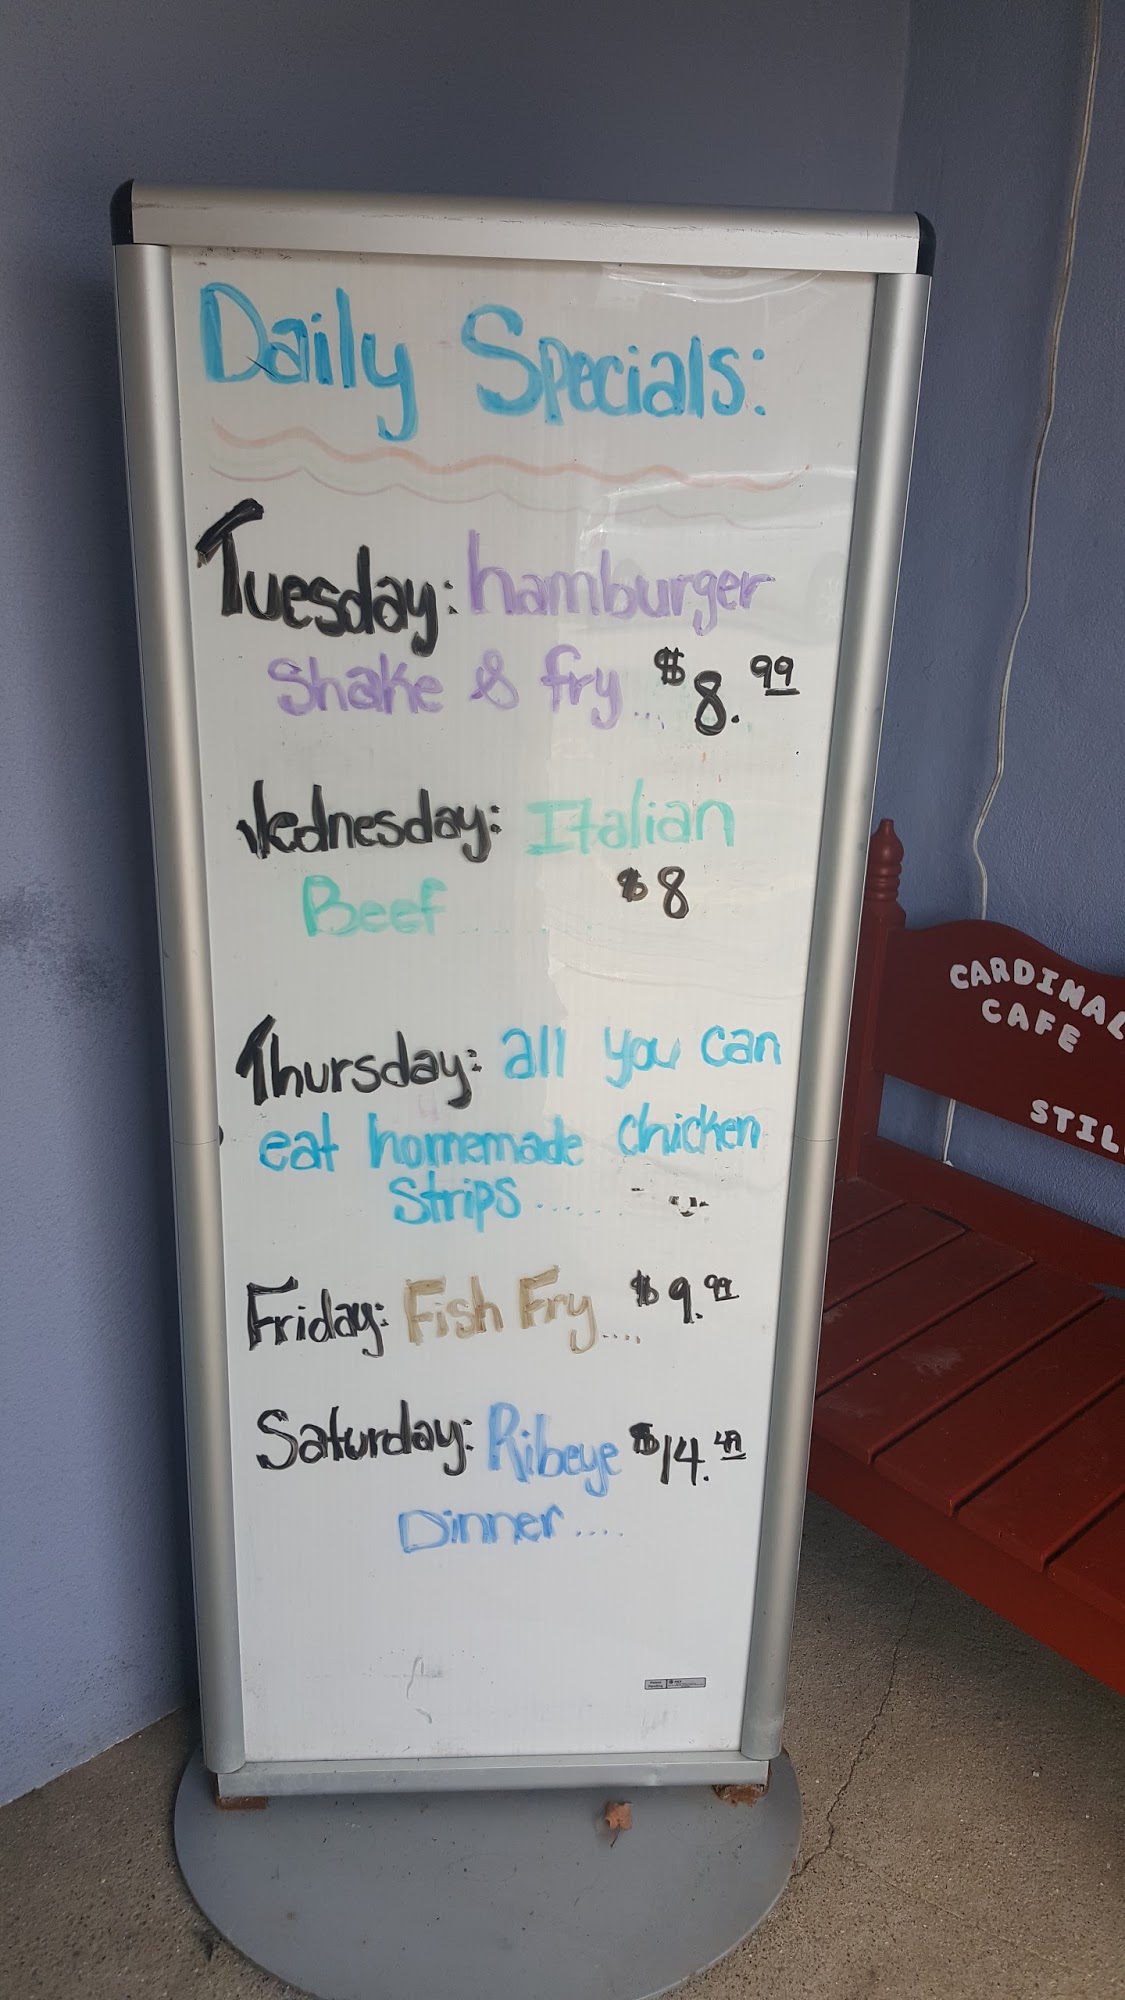 Daily Specials:
Tuesday: hamburger
Shake & fry ... $8.99
Wednesday: Italian
Beef ..... $8
Thursday: all you can
eat homemade chicken
Strips ......
Friday: Fish Fry .... $9.99
Saturday: Ribeye $14.49
Dinner ....
CARDINAL
CAFE
STIL